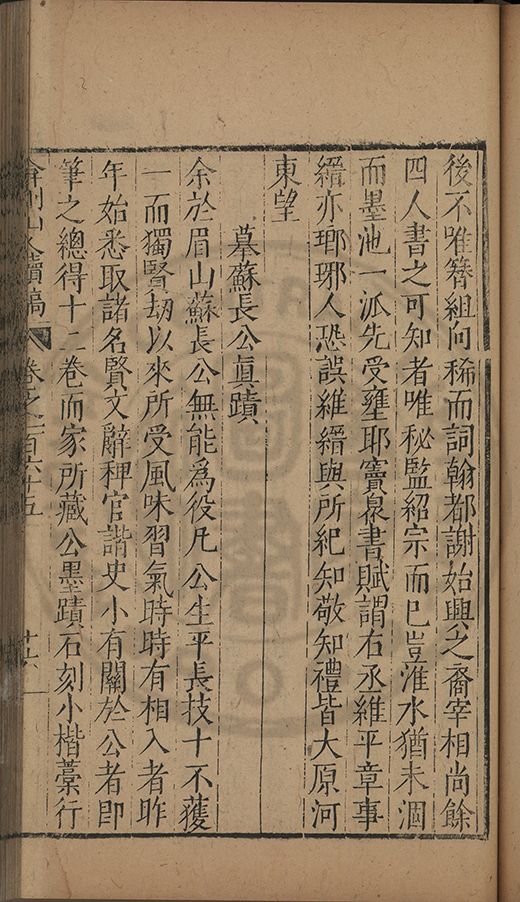 後不唯簪組向稀而詞翰都謝始興之裔宰相尚餘
四人書之可知者唯秘監紹宗而已豈淮水猶未涸
而墨池一派先受壅耶竇臮書賦謂右丞維平章事
縉亦瑯琊人恐誤維縉與所紀知敬知禮皆大原河
東望
摹蘇長公眞蹟
余於眉山蘇長公無能為役凡公生平長技十不獲
一而獨賢劫以來所受風味習氣時時有相入者昨
年始悉取諸名賢文辭稗官諧史小有關於公者即
筆之總得十二卷而家所藏公墨蹟石刻小楷藁行
弇州山人續稿 卷之一百六十五 廿六